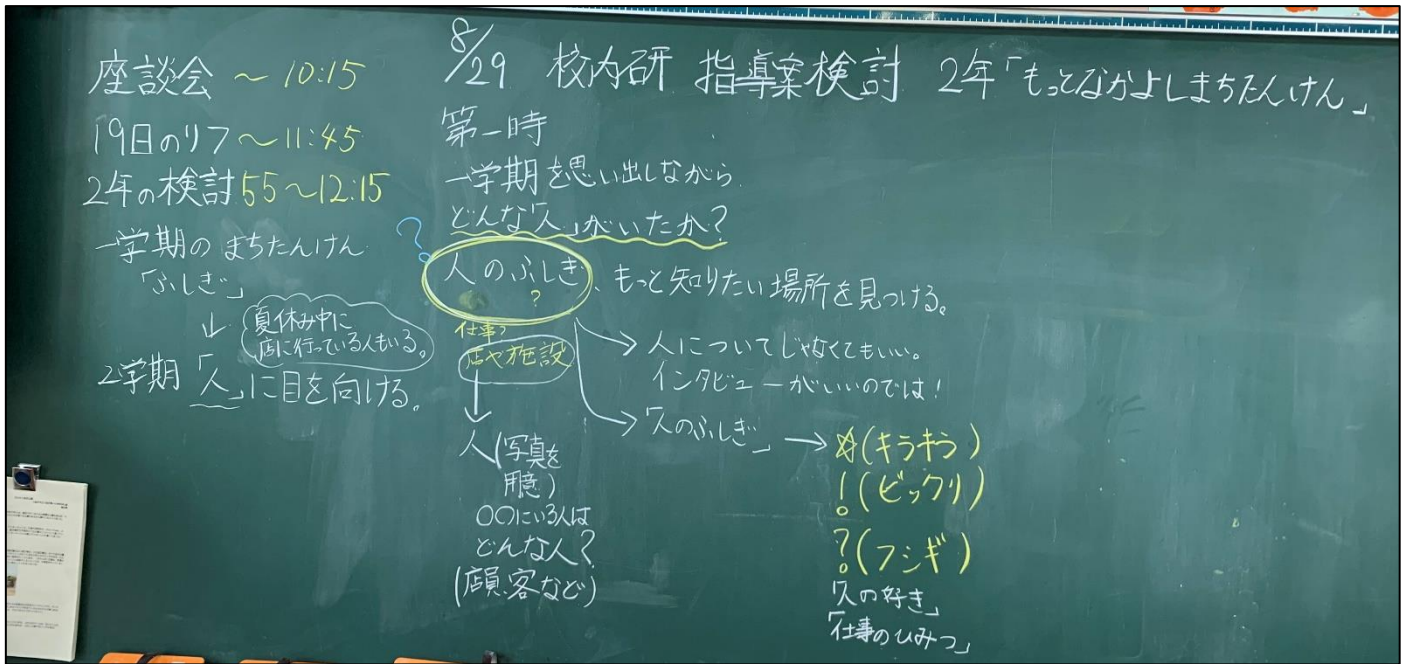 座談会 ～10:15
19日のリフ～11:45
2年の検討 55～12:15
一学期の まちたんけん
「ふしぎ」
↓
夏休み中に
店に行っている人もいる。
2学期 「人」に目を向ける。
8/29 校内研 指導案検討 2年「もっとなかよしまちたんけん」
第一時
一学期を思い出しながら
どんな「人」がいたか?
?
人のふしぎ、もっと知りたい場所を見つける。
?
仕事?
店や施設
↓
人(写真を
用意)
○○にいる人は
どんな人?
(店員、客など)
→ 人についてじゃなくてもいい。
インタビューがいいのでは!
→ 「人のふしぎ」 → ☆(キラキラ)
!(ビックリ)
?(フシギ)
「人の好き」
「仕事のひみつ」